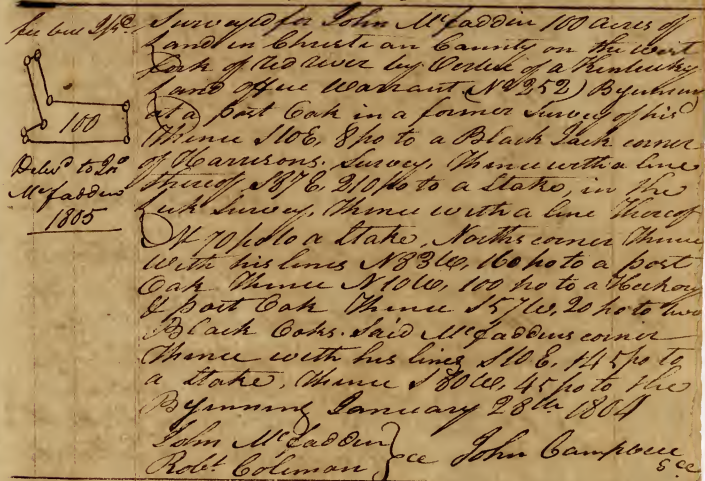 Surveyed for John McFaddin 100 acres of
Land in Christian County on the west
fork of red river by Vertue of a Kentucky
Land office Warrant No 252) Beginning
at a post Oak in a former Survey of his
Thence S10E, 8 po to a Black Jack corner
of Harrisons. Survey, Thence with a line
thereof S87E, 210 po to a Stake, in the
Survey, Thence with a line thereof
N 70 po to a Stake, Norths corner Thence
with his lines N83W, 160 po to a post
Oak Thence N10W, 100 po to a Heckory
& post Oak Thence S57W, 20 po to two
Black Oaks. Said McFaddins corner
Thence with his lines S10E, 145 po to
a Stake, Thence S80W, 45 po to the
Beginning January 28th 1804
John McFaddin
Robt Coleman } cc John Campbell
100
Delivd to Jno
McFaddin
1805